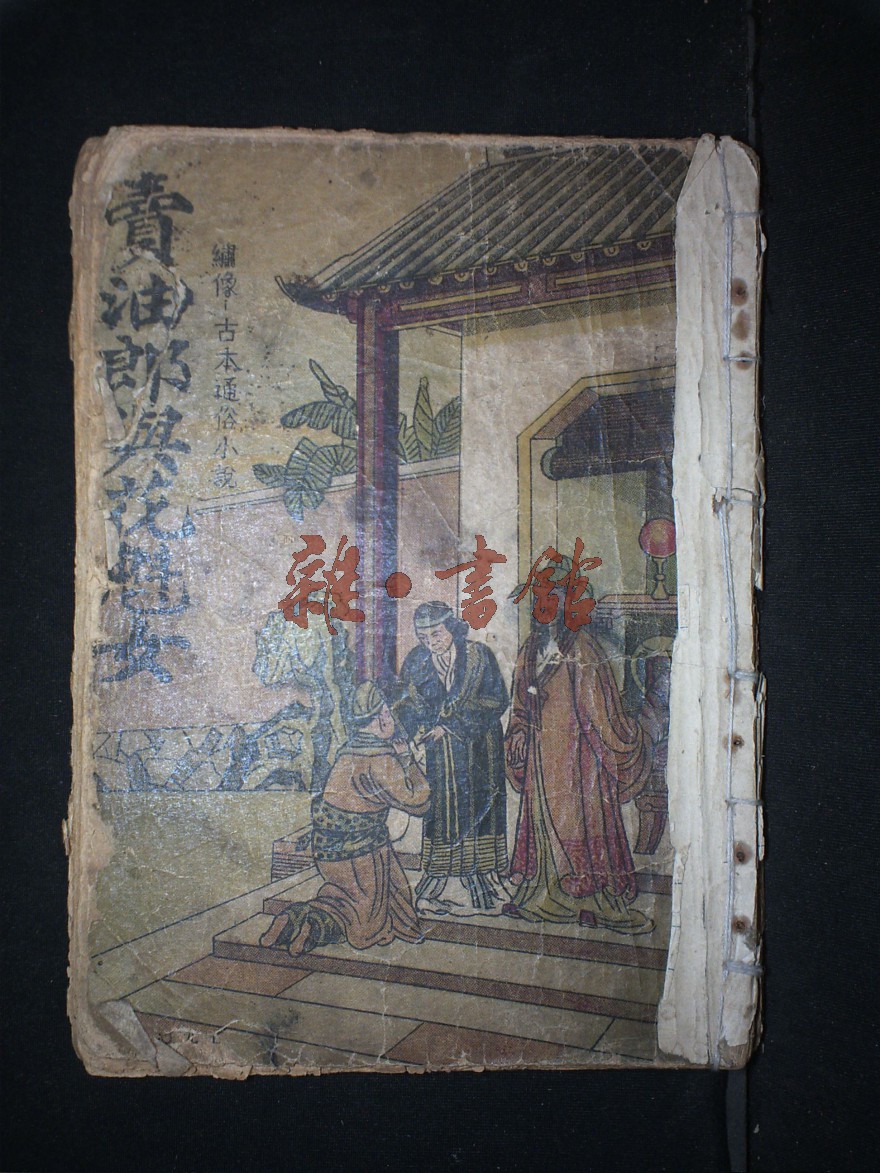 賣油郎與花魁女
繡像-古本通俗小說
雜·書館